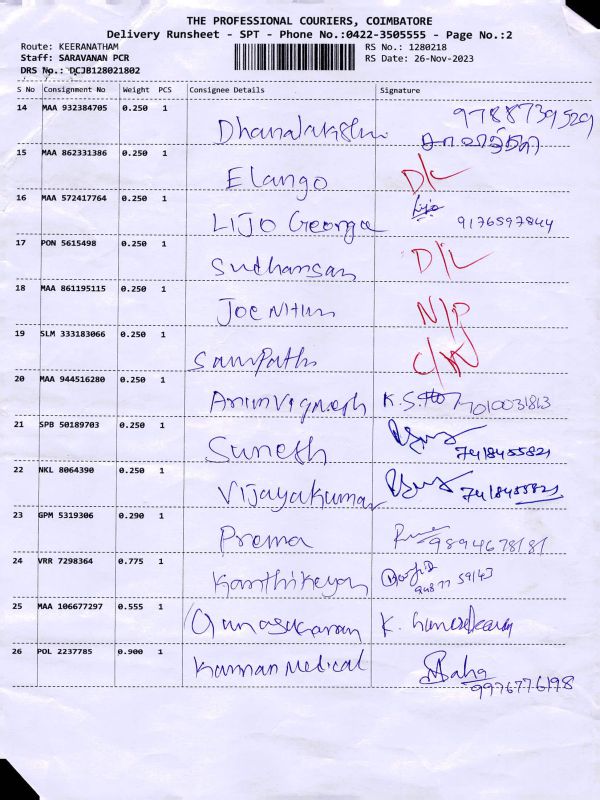 THE PROFESSIONAL COURIERS, COIMBATORE
Delivery Runsheet - SPT - Phone No.:0422-3505555 - Page No.:2
Route: KEERANATHAM RS No.: 1280218
Staff: SARAVANAN PCR RS Date: 26-Nov-2023
DRS No.: DCJB128021802
S No Consignment No Weight PCS Consignee Details Signature
14 MAA 932384705 0.250 1 Dhanalakshmi 9788739529
15 MAA 862331386 0.250 1 Elango D/L
16 MAA 572417764 0.250 1 LIJO George Lijo 9176597844
17 PON 5615498 0.250 1 Sudhansan D/L
18 MAA 861195115 0.250 1 Joe Nithin N/P
19 SLM 333183066 0.250 1 Sampath
20 MAA 944516280 0.250 1 Arunvignesh K.S. 7010031813
21 SPB 50189703 0.250 1 Sunesh 7418455821
22 NKL 8064390 0.250 1 Vijayakumar 7418455821
23 GPM 5319306 0.290 1 Prema 9894678181
24 VRR 7298364 0.775 1 Karthikeyan
25 MAA 106677297 0.555 1 Gunasekaran K. Gunasekaran
26 POL 2237785 0.900 1 Kannan Medical 9976776198